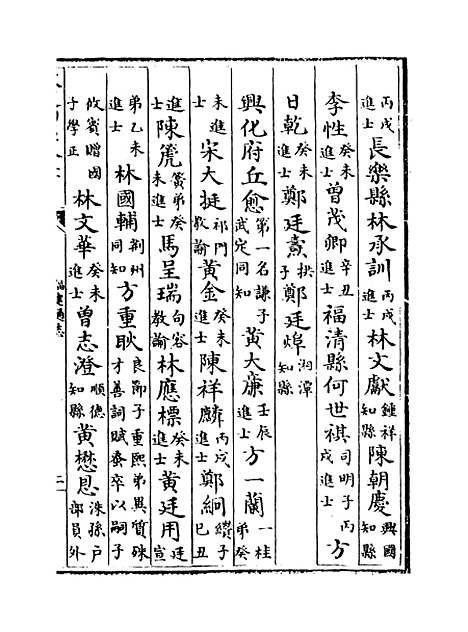 丙戌進士長樂縣林承訓丙戌進士林文獻鍾祥知縣陳朝慶興國知縣
李性癸未進士曾茂卿辛丑進士福清縣何世祺司明子丙戌進士方
日乾癸未進士鄭廷燾拱子鄭廷焊湘潭知縣
興化府丘愈第一名謙子武定同知黄大廉壬辰進士方一蘭一桂弟癸
未進士宋大挺祁門教諭黄金癸未進士陳祥麟丙戌進士鄭絅纘子己丑
進士陳箎簧弟癸未進士馬呈瑞句容教諭林應標癸未進士黄廷用廷宣
弟乙未進士林國輔荆州同知方重耿良節子重熙弟異質殊才善詞賦蚤卒以嗣子
攸賓贈國子學正林文華癸未進士曾志澄順德知縣黄懋恩洙孫戸部員外
福建通志